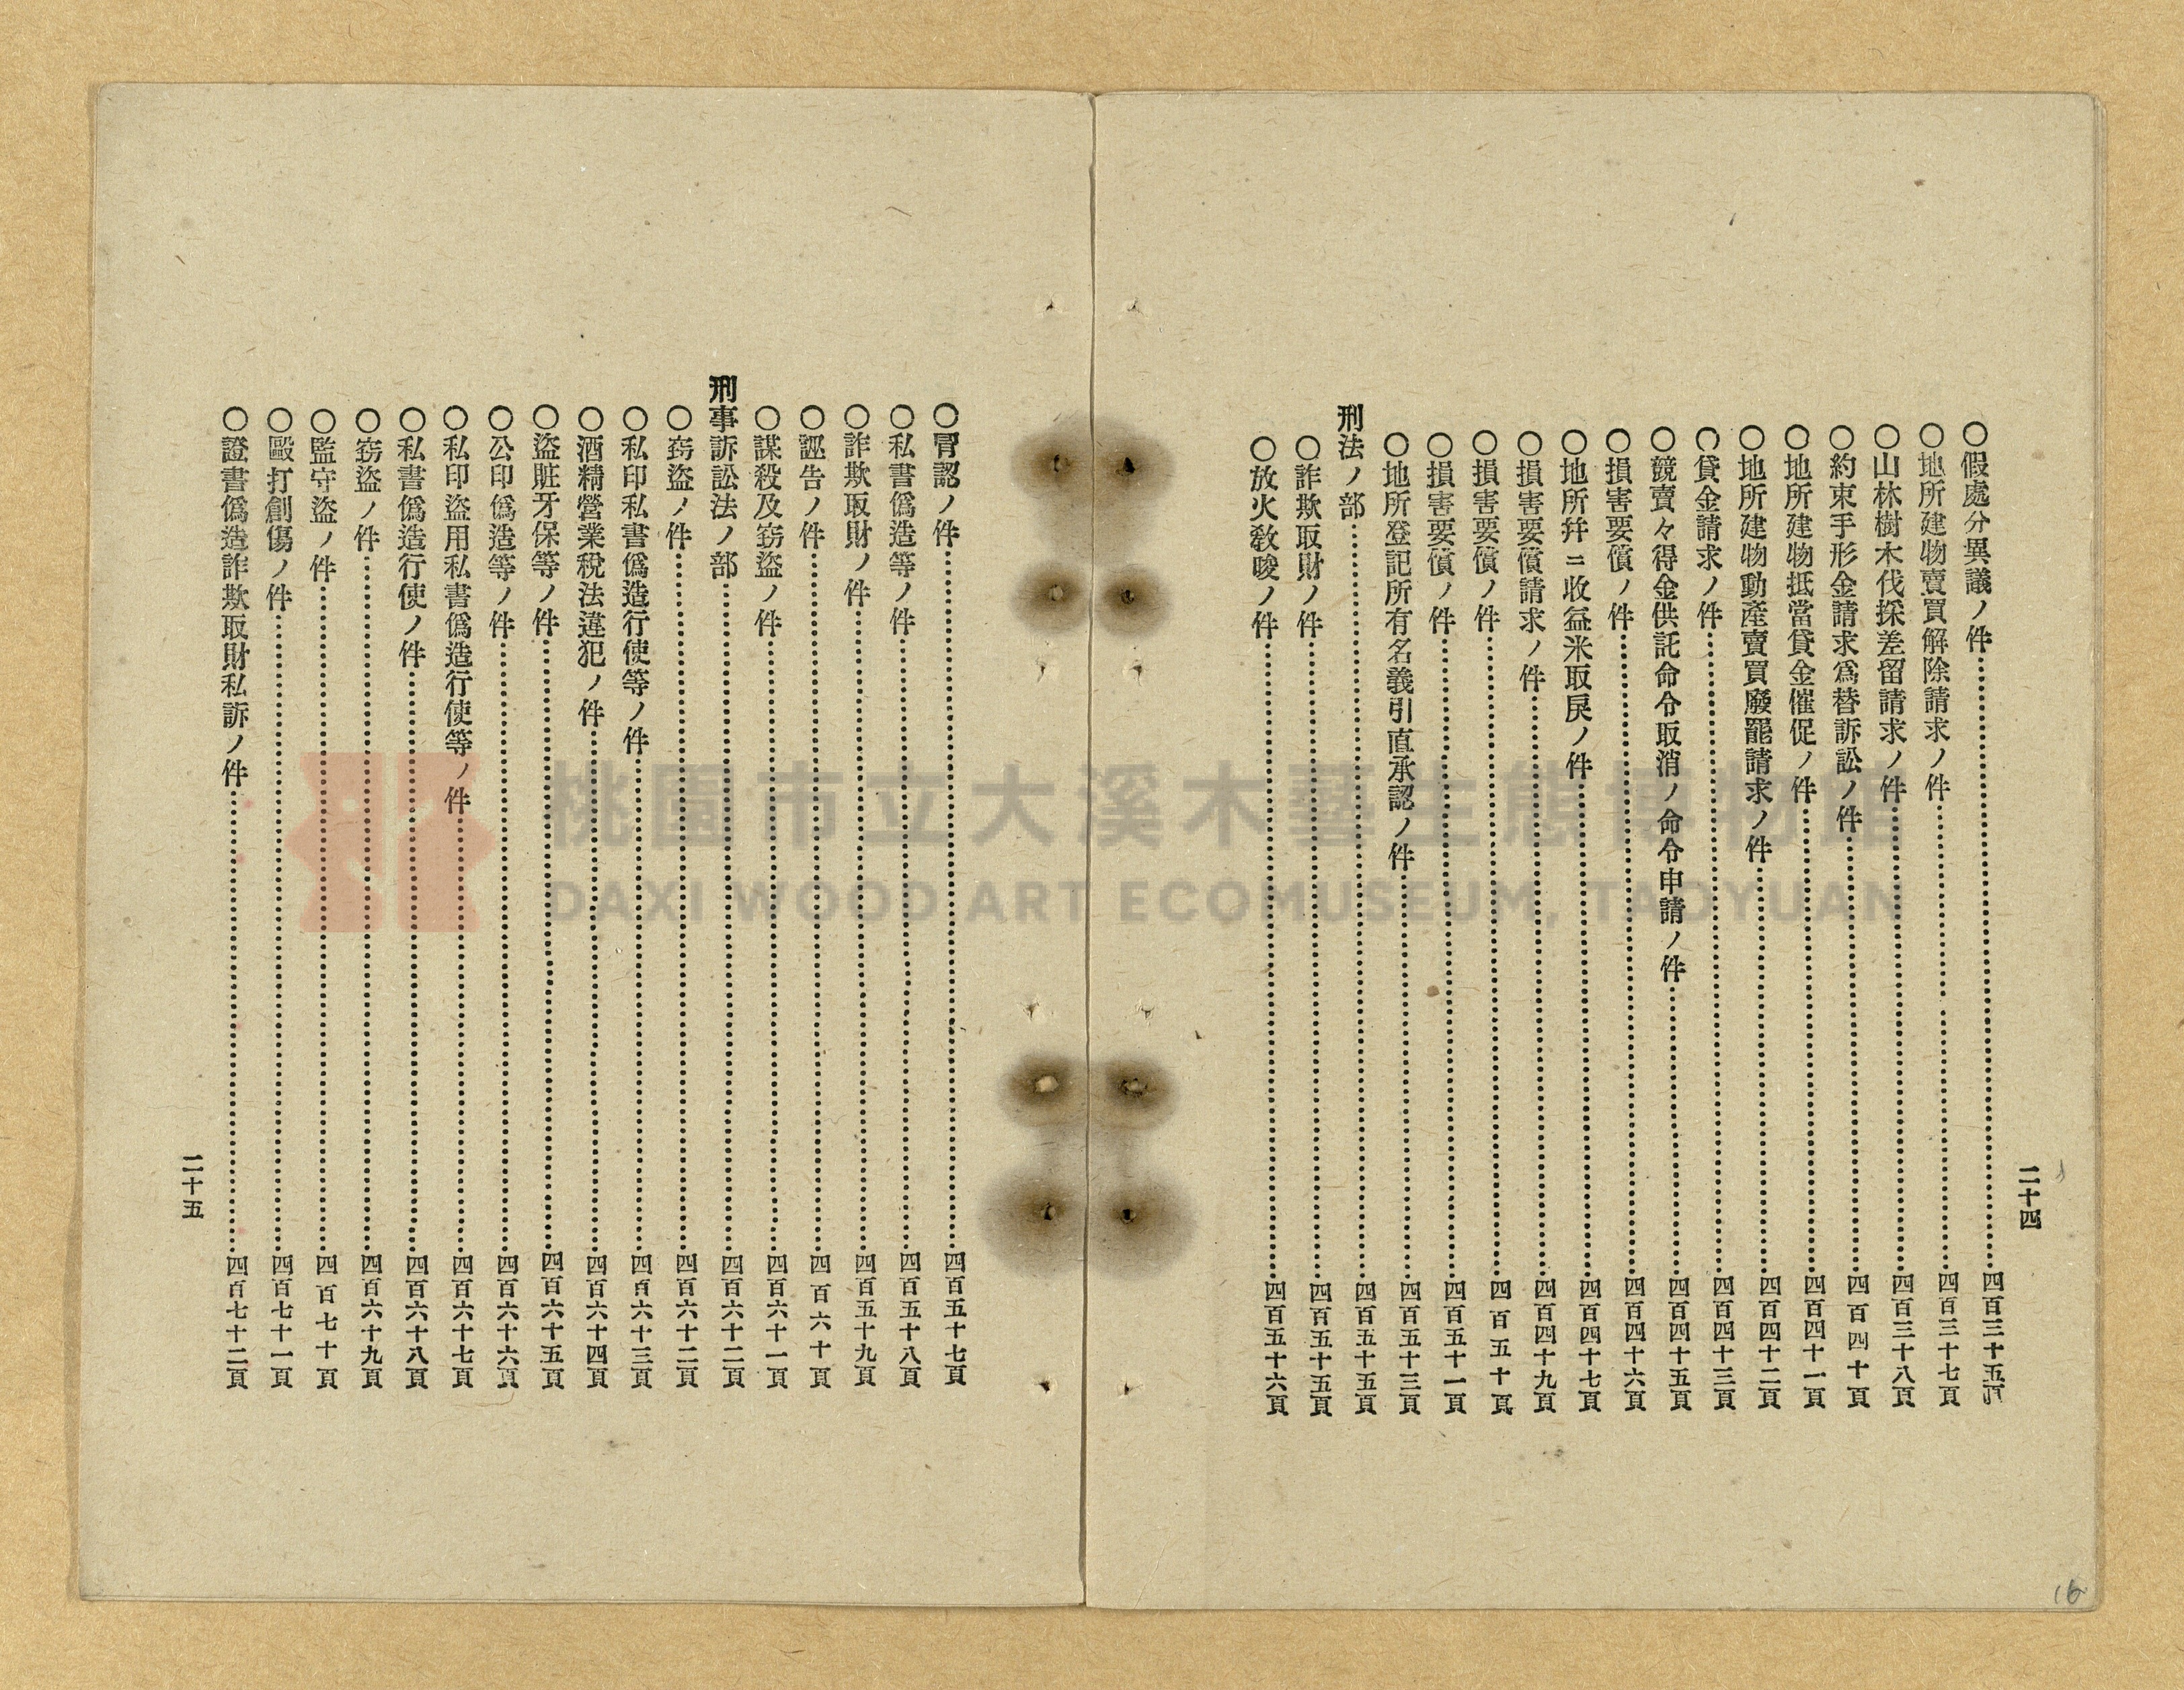 二十四
〇假處分異議ノ件……四百三十五頁
〇地所建物賣買解除請求ノ件……四百三十七頁
〇山林樹木伐採差留請求ノ件……四百三十八頁
〇約束手形金請求爲替訴訟ノ件……四百四十頁
〇地所建物抵當貸金催促ノ件……四百四十一頁
〇地所建物動產賣買廢罷請求ノ件……四百四十二頁
〇貸金請求ノ件……四百四十三頁
〇競賣々得金供託命令取消ノ命令申請ノ件……四百四十五頁
〇損害要償ノ件……四百四十六頁
〇地所幷ニ收益米取戾ノ件……四百四十七頁
〇損害要償請求ノ件……四百四十九頁
〇損害要償ノ件……四百五十頁
〇損害要償ノ件……四百五十一頁
〇地所登記所有名義引直承認ノ件……四百五十三頁
刑法ノ部……四百五十五頁
〇詐欺取財ノ件……四百五十五頁
〇放火敎唆ノ件……四百五十六頁
〇冐認ノ件……四百五十七頁
〇私書僞造等ノ件……四百五十八頁
〇詐欺取財ノ件……四百五十九頁
〇誣告ノ件……四百六十頁
〇謀殺及竊盜ノ件……四百六十一頁
刑事訴訟法ノ部……四百六十二頁
〇竊盜ノ件……四百六十二頁
〇私印私書僞造行使等ノ件……四百六十三頁
〇酒精營業稅法違犯ノ件……四百六十四頁
〇盜贓牙保等ノ件……四百六十五頁
〇公印僞造等ノ件……四百六十六頁
〇私印盜用私書僞造行使等ノ件……四百六十七頁
〇私書僞造行使ノ件……四百六十八頁
〇竊盜ノ件……四百六十九頁
〇監守盜ノ件……四百七十頁
〇毆打創傷ノ件……四百七十一頁
〇證書僞造詐欺取財私訴ノ件……四百七十二頁
二十五
16
桃園市立大溪木藝生態博物館
DAXI WOOD ART ECOMUSEUM, TAOYUAN